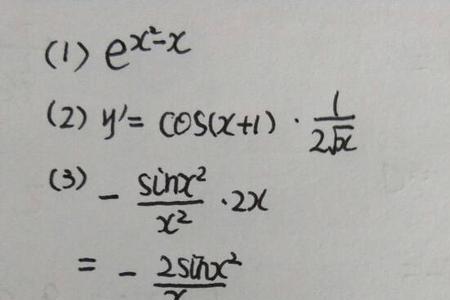 (1) e^{x²-x}
(2) y'= cos(x+1) · \frac{1}{2\sqrt{x}}
(3) - \frac{sinx²}{x²} · 2x
= - \frac{2sinx²}{x}